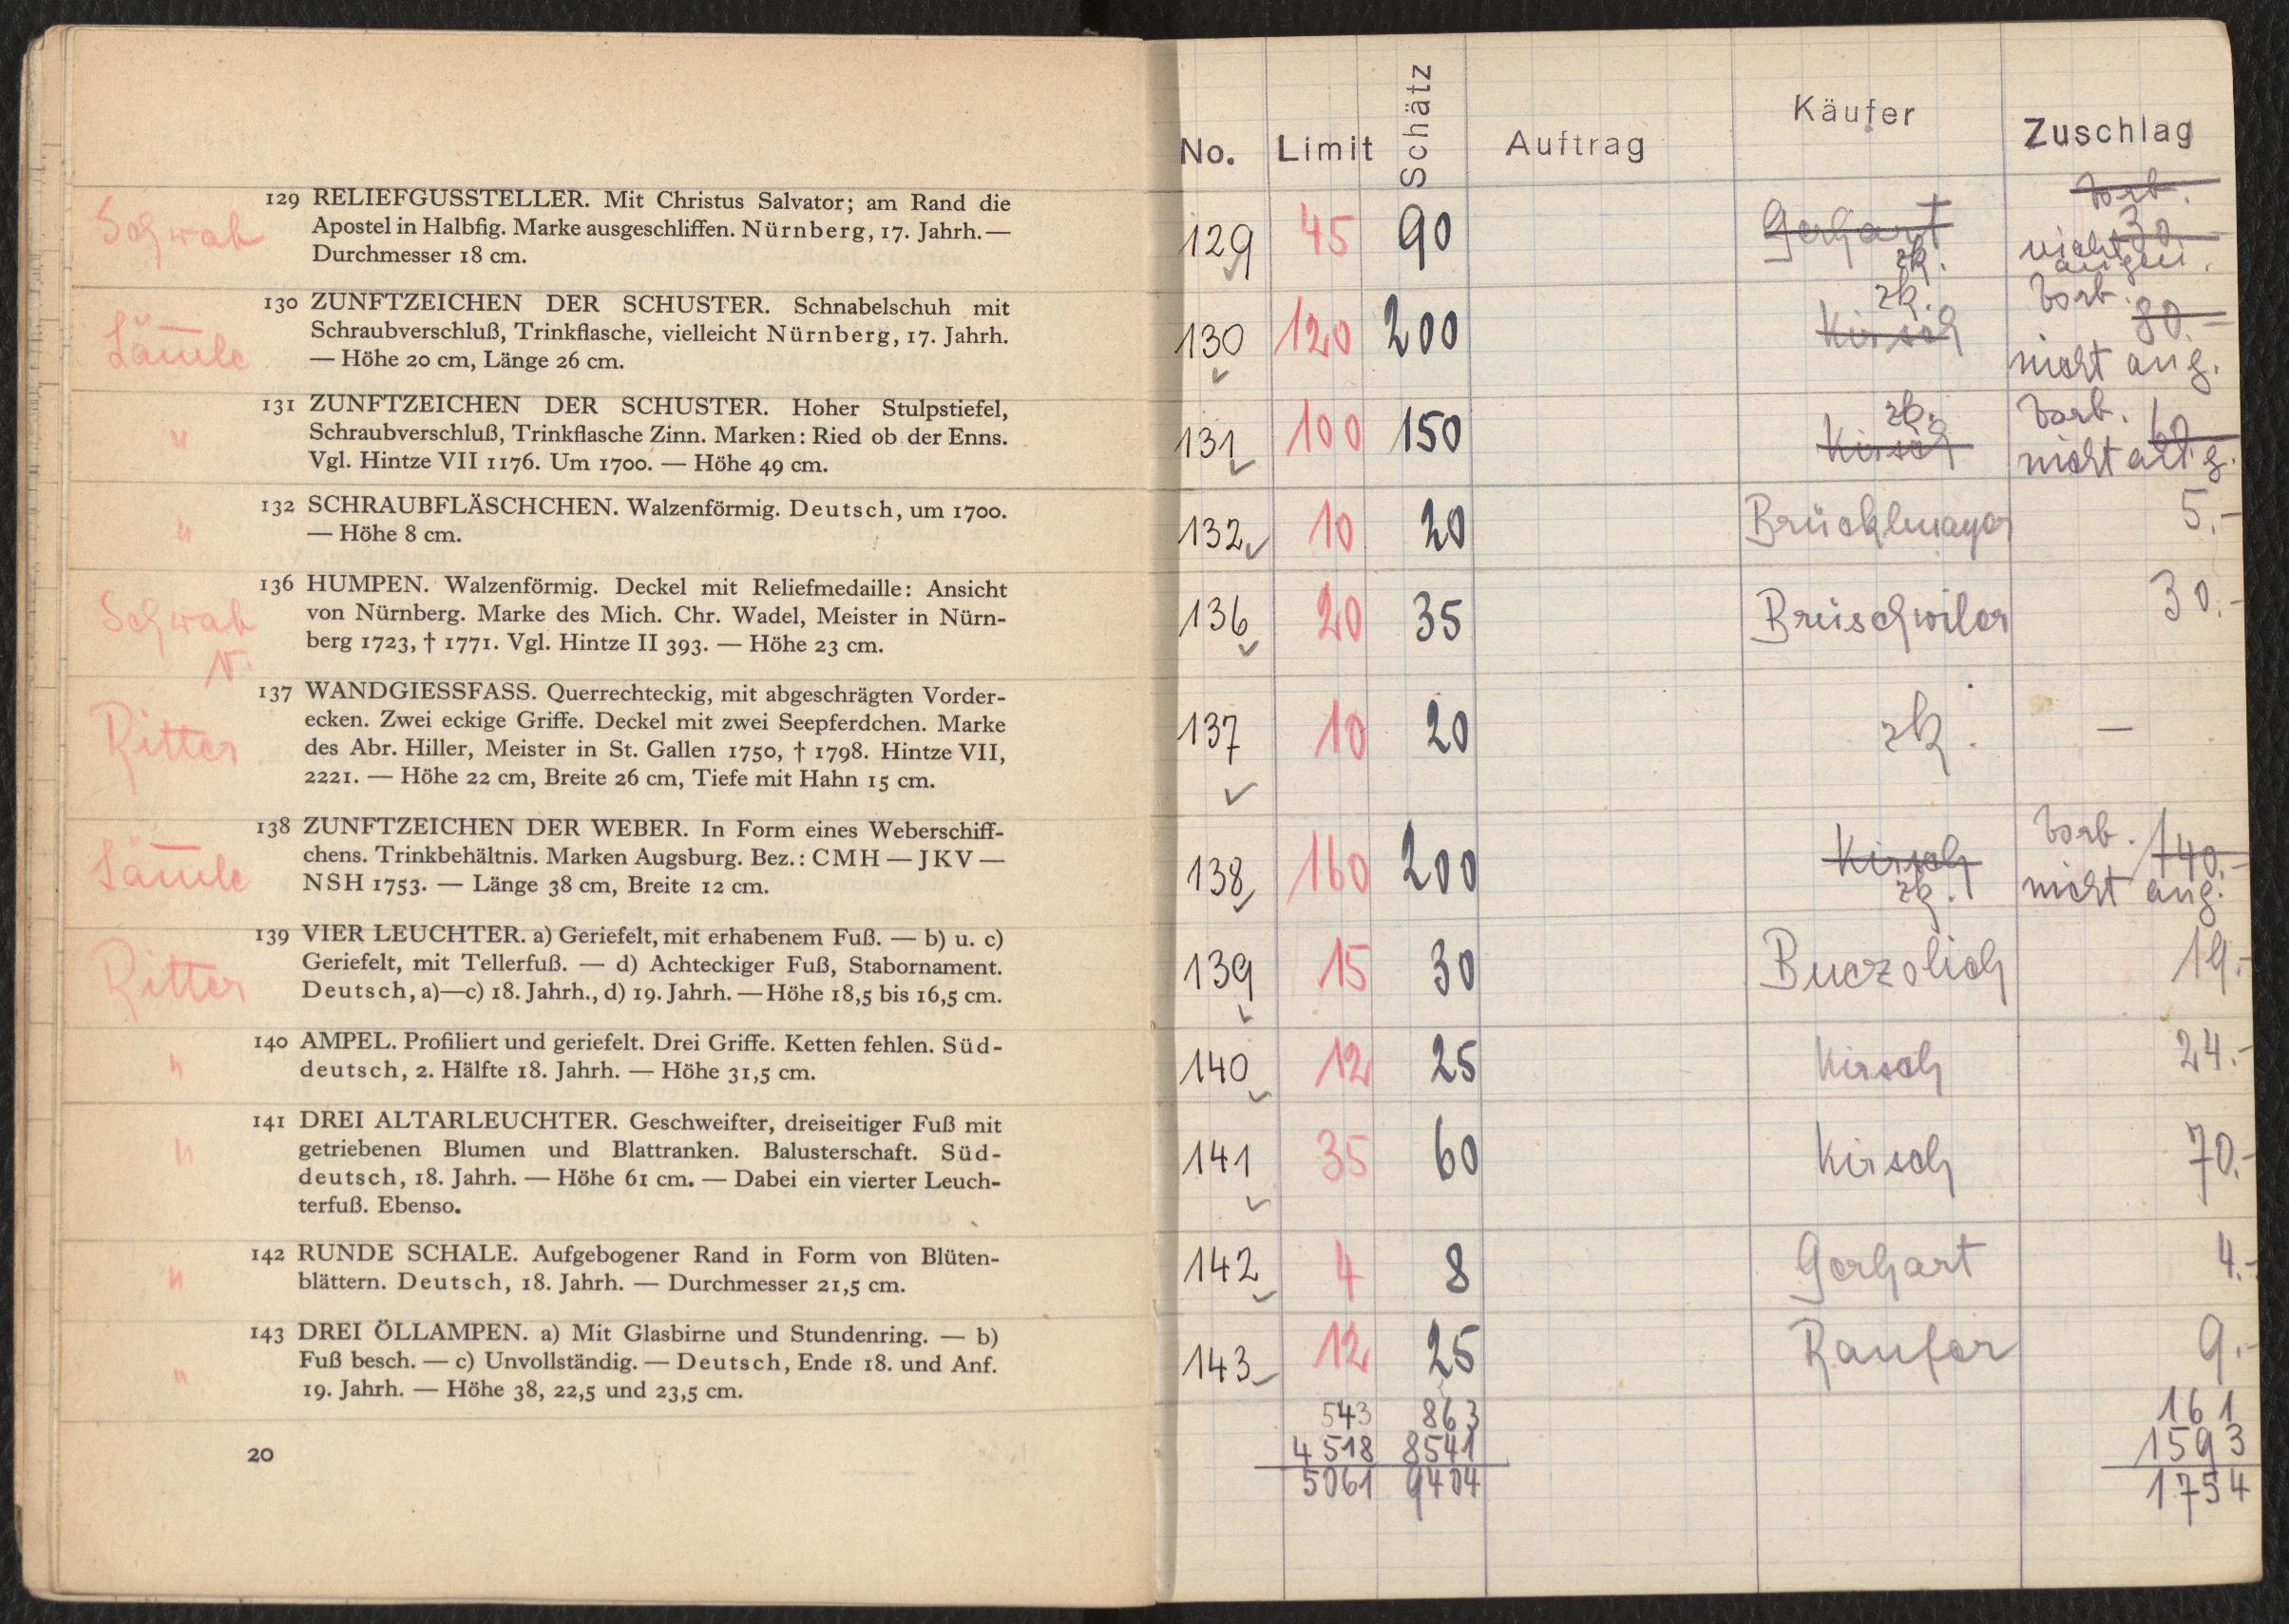 Schwab
129 RELIEFGUSSTELLER. Mit Christus Salvator; am Rand die
Apostel in Halbfig. Marke ausgeschliffen. Nürnberg, 17. Jahrh. —
Durchmesser 18 cm.
Lämle
130 ZUNFTZEICHEN DER SCHUSTER. Schnabelschuh mit
Schraubverschluß, Trinkflasche, vielleicht Nürnberg, 17. Jahrh.
— Höhe 20 cm, Länge 26 cm.
"
131 ZUNFTZEICHEN DER SCHUSTER. Hoher Stulpstiefel,
Schraubverschluß, Trinkflasche Zinn. Marken: Ried ob der Enns.
Vgl. Hintze VII 1176. Um 1700. — Höhe 49 cm.
"
132 SCHRAUBFLÄSCHCHEN. Walzenförmig. Deutsch, um 1700.
— Höhe 8 cm.
Schwab
N.
136 HUMPEN. Walzenförmig. Deckel mit Reliefmedaille: Ansicht
von Nürnberg. Marke des Mich. Chr. Wadel, Meister in Nürn-
berg 1723, † 1771. Vgl. Hintze II 393. — Höhe 23 cm.
Ritter
137 WANDGIESSFASS. Querrechteckig, mit abgeschrägten Vorder-
ecken. Zwei eckige Griffe. Deckel mit zwei Seepferdchen. Marke
des Abr. Hiller, Meister in St. Gallen 1750, † 1798. Hintze VII,
2221. — Höhe 22 cm, Breite 26 cm, Tiefe mit Hahn 15 cm.
Lämle
138 ZUNFTZEICHEN DER WEBER. In Form eines Weberschiff-
chens. Trinkbehältnis. Marken Augsburg. Bez.: CMH — JKV —
NSH 1753. — Länge 38 cm, Breite 12 cm.
Ritter
139 VIER LEUCHTER. a) Geriefelt, mit erhabenem Fuß. — b) u. c)
Geriefelt, mit Tellerfuß. — d) Achteckiger Fuß, Stabornament.
Deutsch, a)—c) 18. Jahrh., d) 19. Jahrh. — Höhe 18,5 bis 16,5 cm.
"
140 AMPEL. Profiliert und geriefelt. Drei Griffe. Ketten fehlen. Süd-
deutsch, 2. Hälfte 18. Jahrh. — Höhe 31,5 cm.
"
141 DREI ALTARLEUCHTER. Geschweifter, dreiseitiger Fuß mit
getriebenen Blumen und Blattranken. Balusterschaft. Süd-
deutsch, 18. Jahrh. — Höhe 61 cm. — Dabei ein vierter Leuch-
terfuß. Ebenso.
"
142 RUNDE SCHALE. Aufgebogener Rand in Form von Blüten-
blättern. Deutsch, 18. Jahrh. — Durchmesser 21,5 cm.
"
143 DREI ÖLLAMPEN. a) Mit Glasbirne und Stundenring. — b)
Fuß besch. — c) Unvollständig. — Deutsch, Ende 18. und Anf.
19. Jahrh. — Höhe 38, 22,5 und 23,5 cm.
20
No. Limit Schätz Auftrag Käufer Zuschlag
Vorb.
129 45 90 Gerhart 30.
zk. nicht angen.
zk. Vorb. 80.—
130 120 200 Kirsch
nicht ang.
zk. Vorb.
131 100 150 Kirsch nicht ang.
132 10 20 Brücklmayer 5.-
136 20 35 Brüschwiler 30.-
137 10 20 zk. —
Vorb. 140.-
138 160 200 Kirsch
zk. nicht ang.
139 15 30 Buczolich 19.-
140 12 25 Kirsch 24.-
141 35 60 Kirsch 70.-
142 4 8 Gerhart 4.-
143 12 25 Raufer 9.-
543 863 161
4518 8541 1593
5061 9404 1754